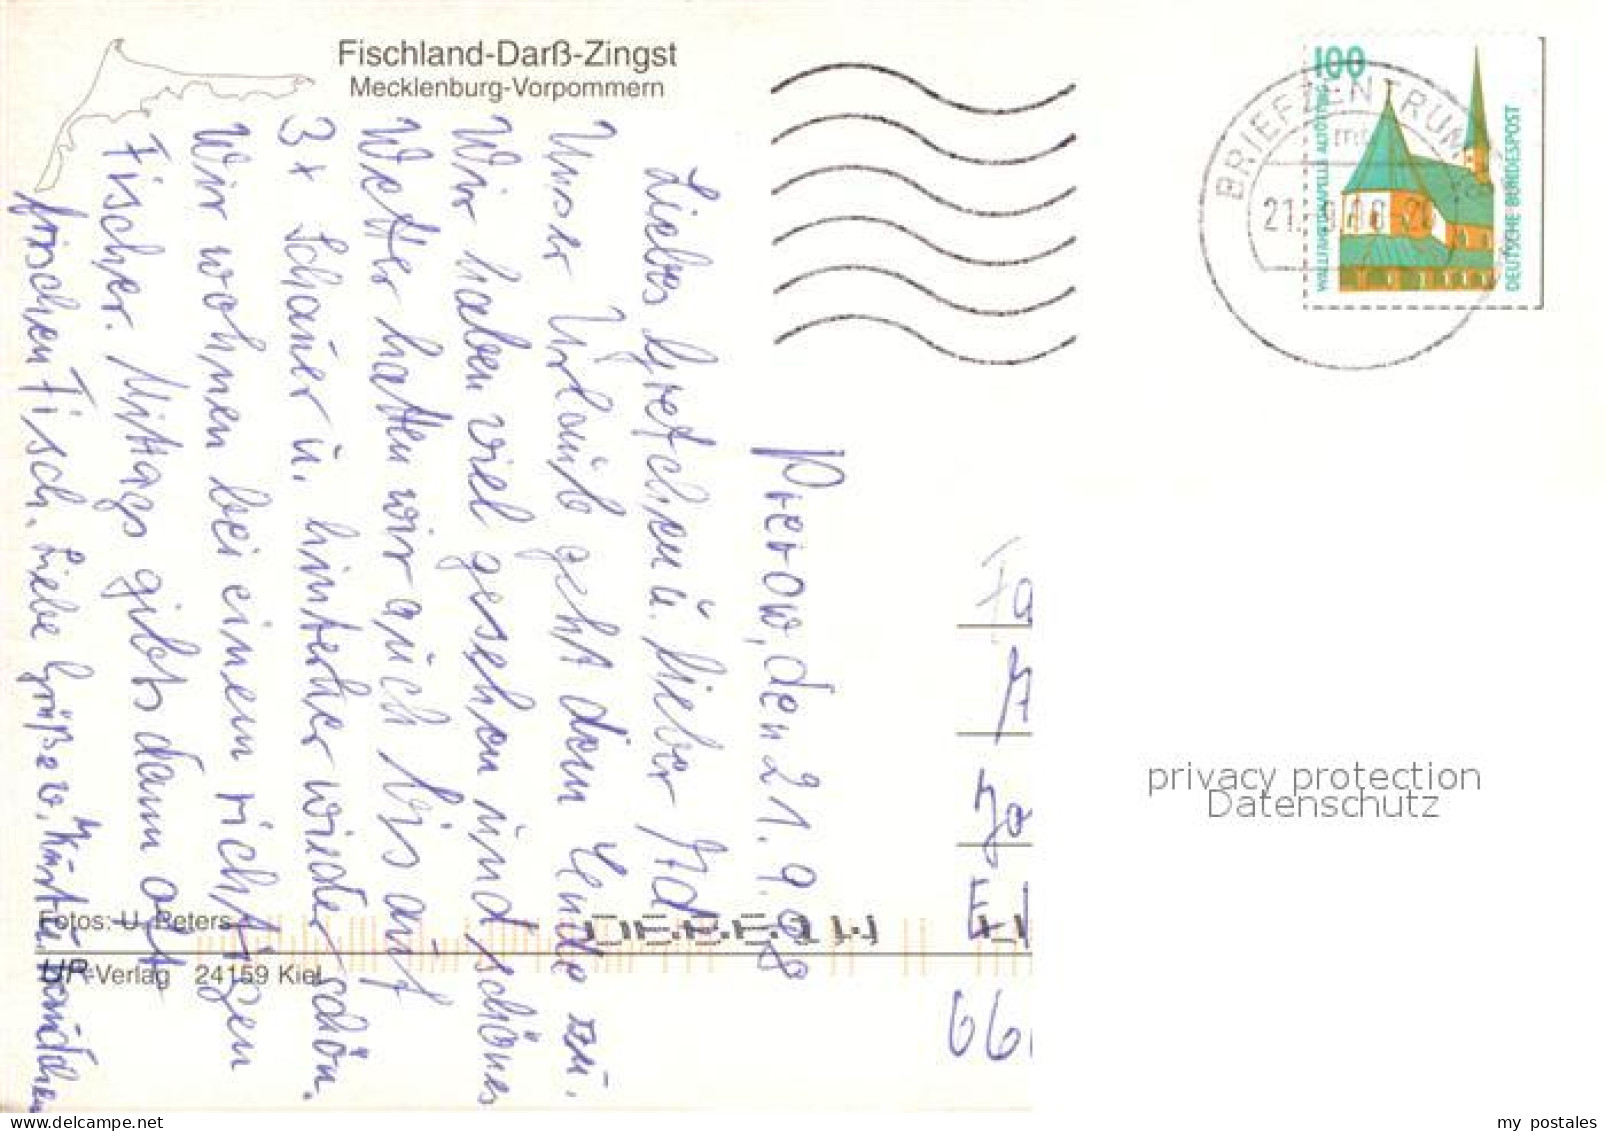 Fischland-Darß-Zingst
Mecklenburg-Vorpommern
Prerow, den 21.9.98
Liebes Gretchen u. lieber
Unser Urlaub geht dem Ende zu.
Wir haben viel gesehen und schönes
Wetter hatten wir auch bis auf
3x Schauer u. hinterher wieder schön.
Wir wohnen bei einem richtigen
Fischer. Mittags gibts dann oft
frischen Fisch. Liebe Grüße v.
Fotos: U. Peters
UR-Verlag 24159 Kiel
100
WALLFAHRTSKAPELLE ALTÖTTING
DEUTSCHE BUNDESPOST
BRIEFZENTRUM
21.
Fa
Ja
66
privacy protection
Datenschutz
delcampe.net
my_postales